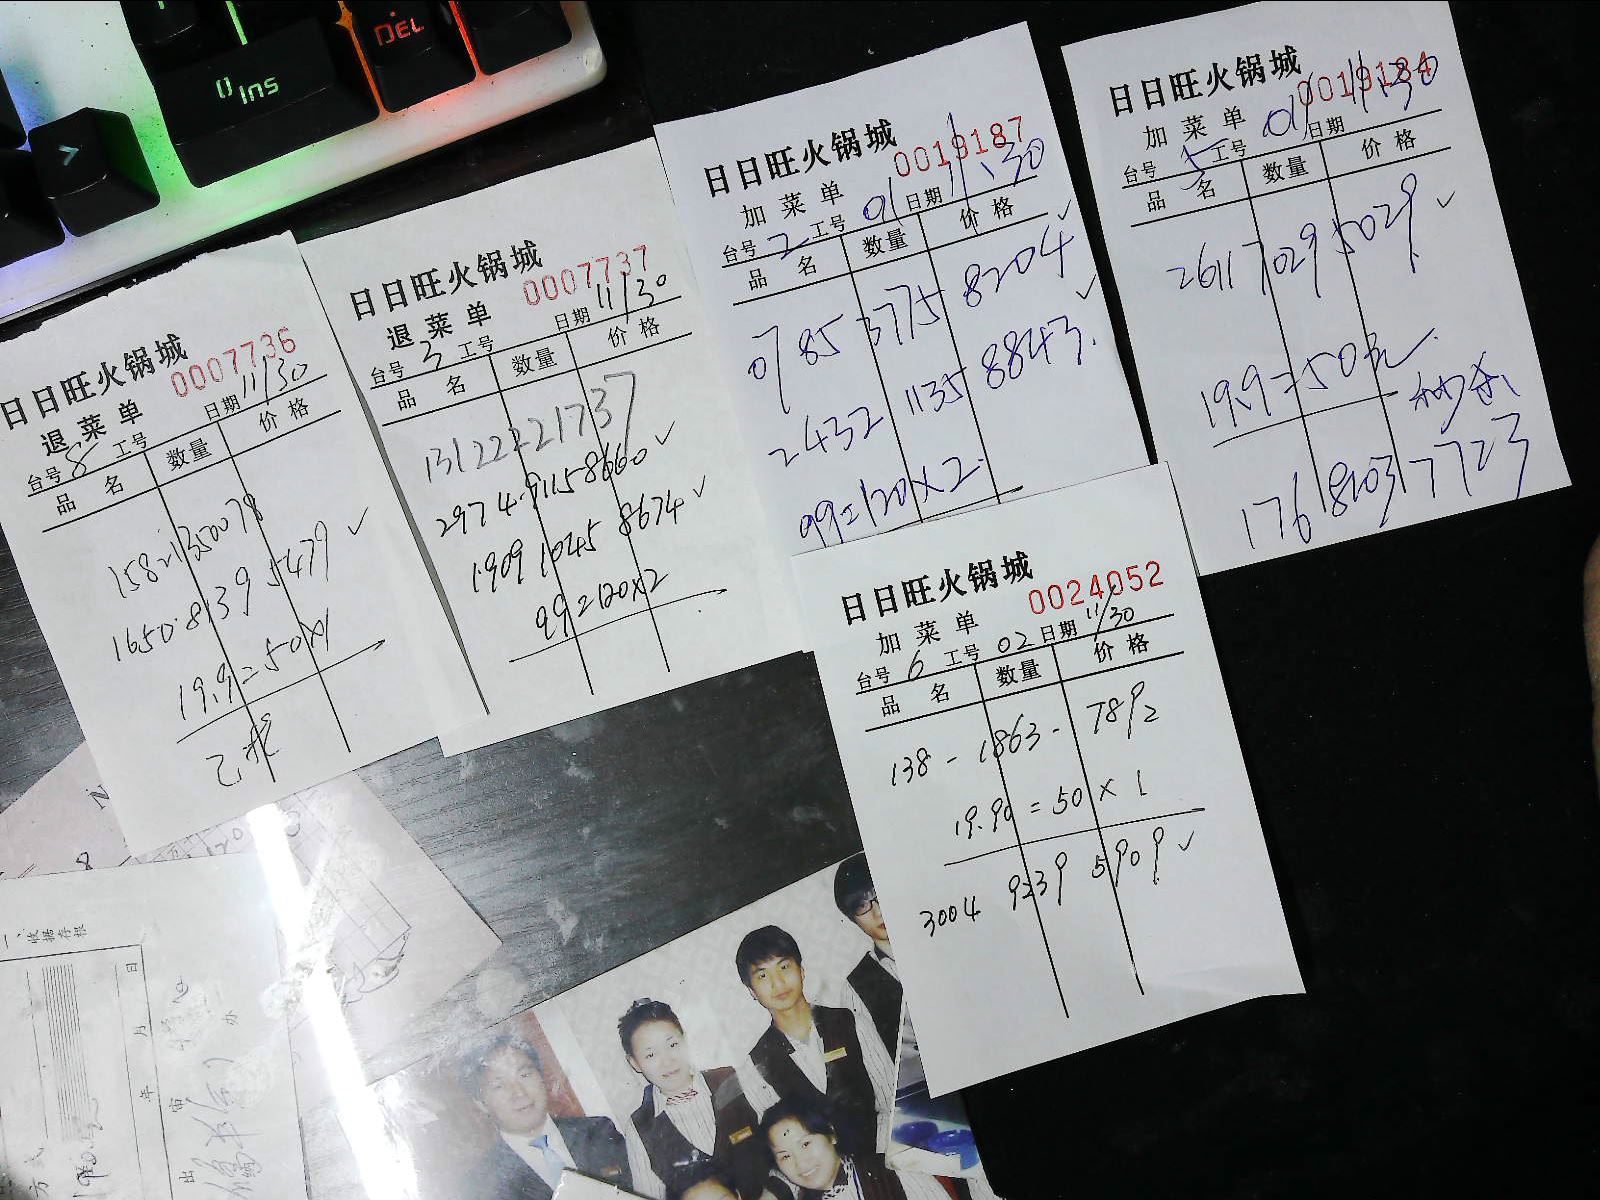 Del
0 Ins
日日旺火锅城
0007736
退菜单
日期 11/30
台号 8 工号
品名 数量 价格
158 21350078
1650.8139 5479 ✓
19.9=50x1
日日旺火锅城
0007737
退菜单
日期 11/30
台号 3 工号
品名 数量 价格
13122221737
2974.9115 8660 ✓
1909 1045 8674 ✓
99=120x2
日日旺火锅城
0019187
加菜单
台号 2 工号 01 日期 11.30
品名 数量 价格
0785 3775 8204 ✓
2432 1135 8843. ✓
99=120x2.
日日旺火锅城
0019184
加菜单
台号 5 工号 01 日期 11.30
品名 数量 价格
2611 7029 5029 ✓
19.9=50元
秒杀
176 8103 7723
日日旺火锅城
0024052
加菜单
台号 6 工号 02 日期 11/30
品名 数量 价格
138 - 1863 - 7892
19.90 = 50 x 1
3004 9239 5909 ✓
一、收据存根
年 月 日